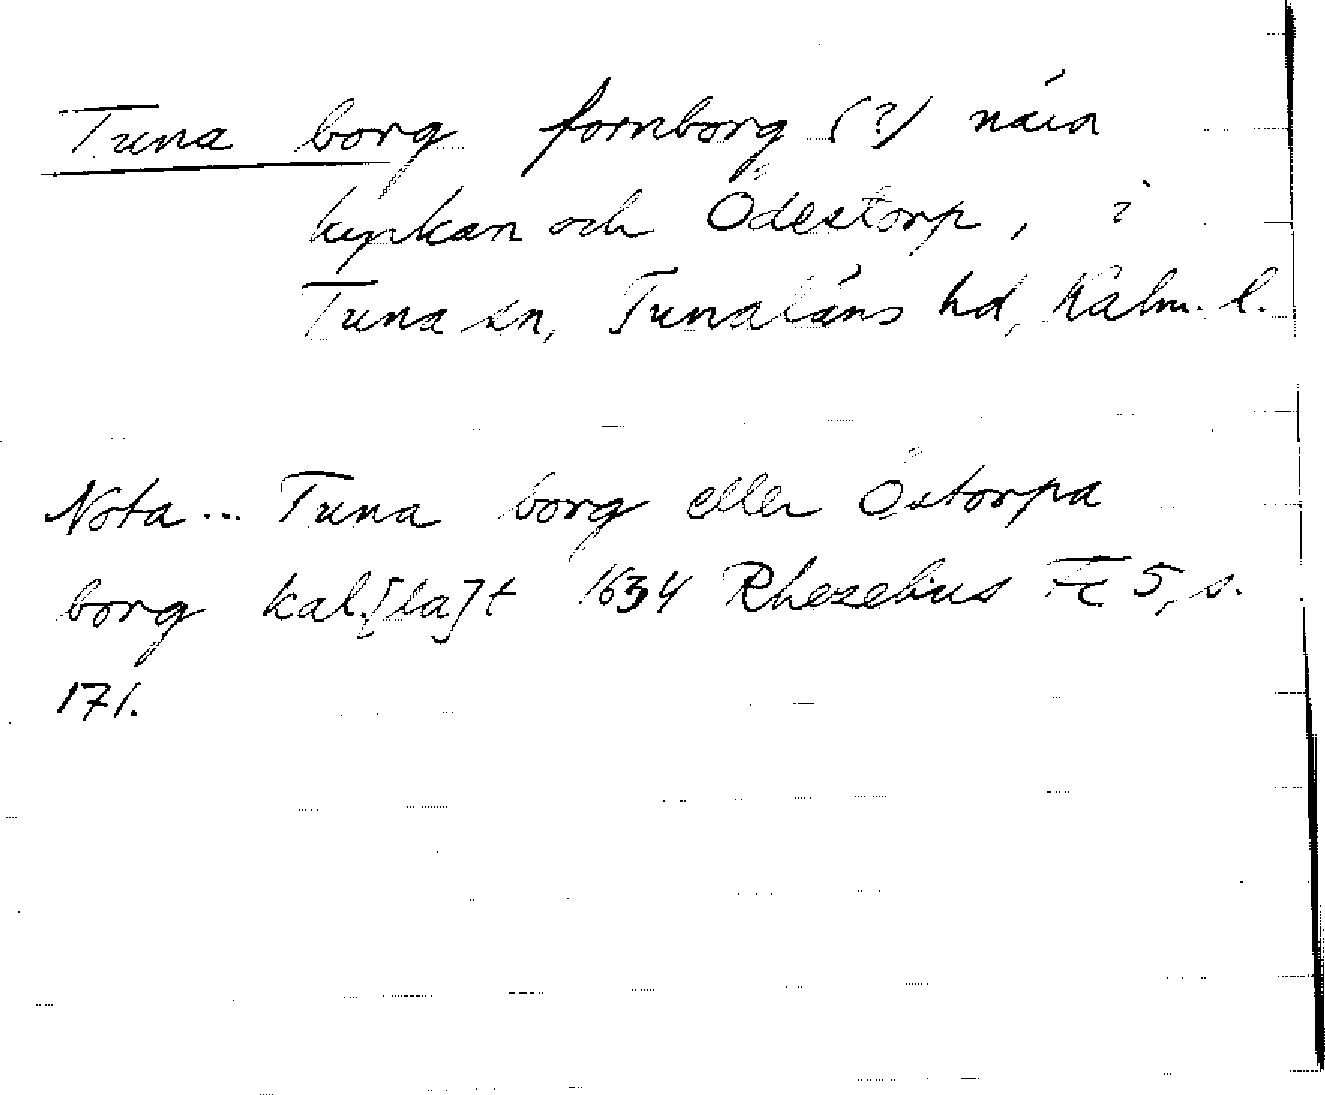 Tuna borg fornborg (?) nära
kyrkan och Ödestorp, i
Tuna sn, Tunaläns hd, Kalm. l.
Nota... Tuna borg eller Östorpa
borg kal.[la]t 1634 Rhezelius Fc 5, s.
171.